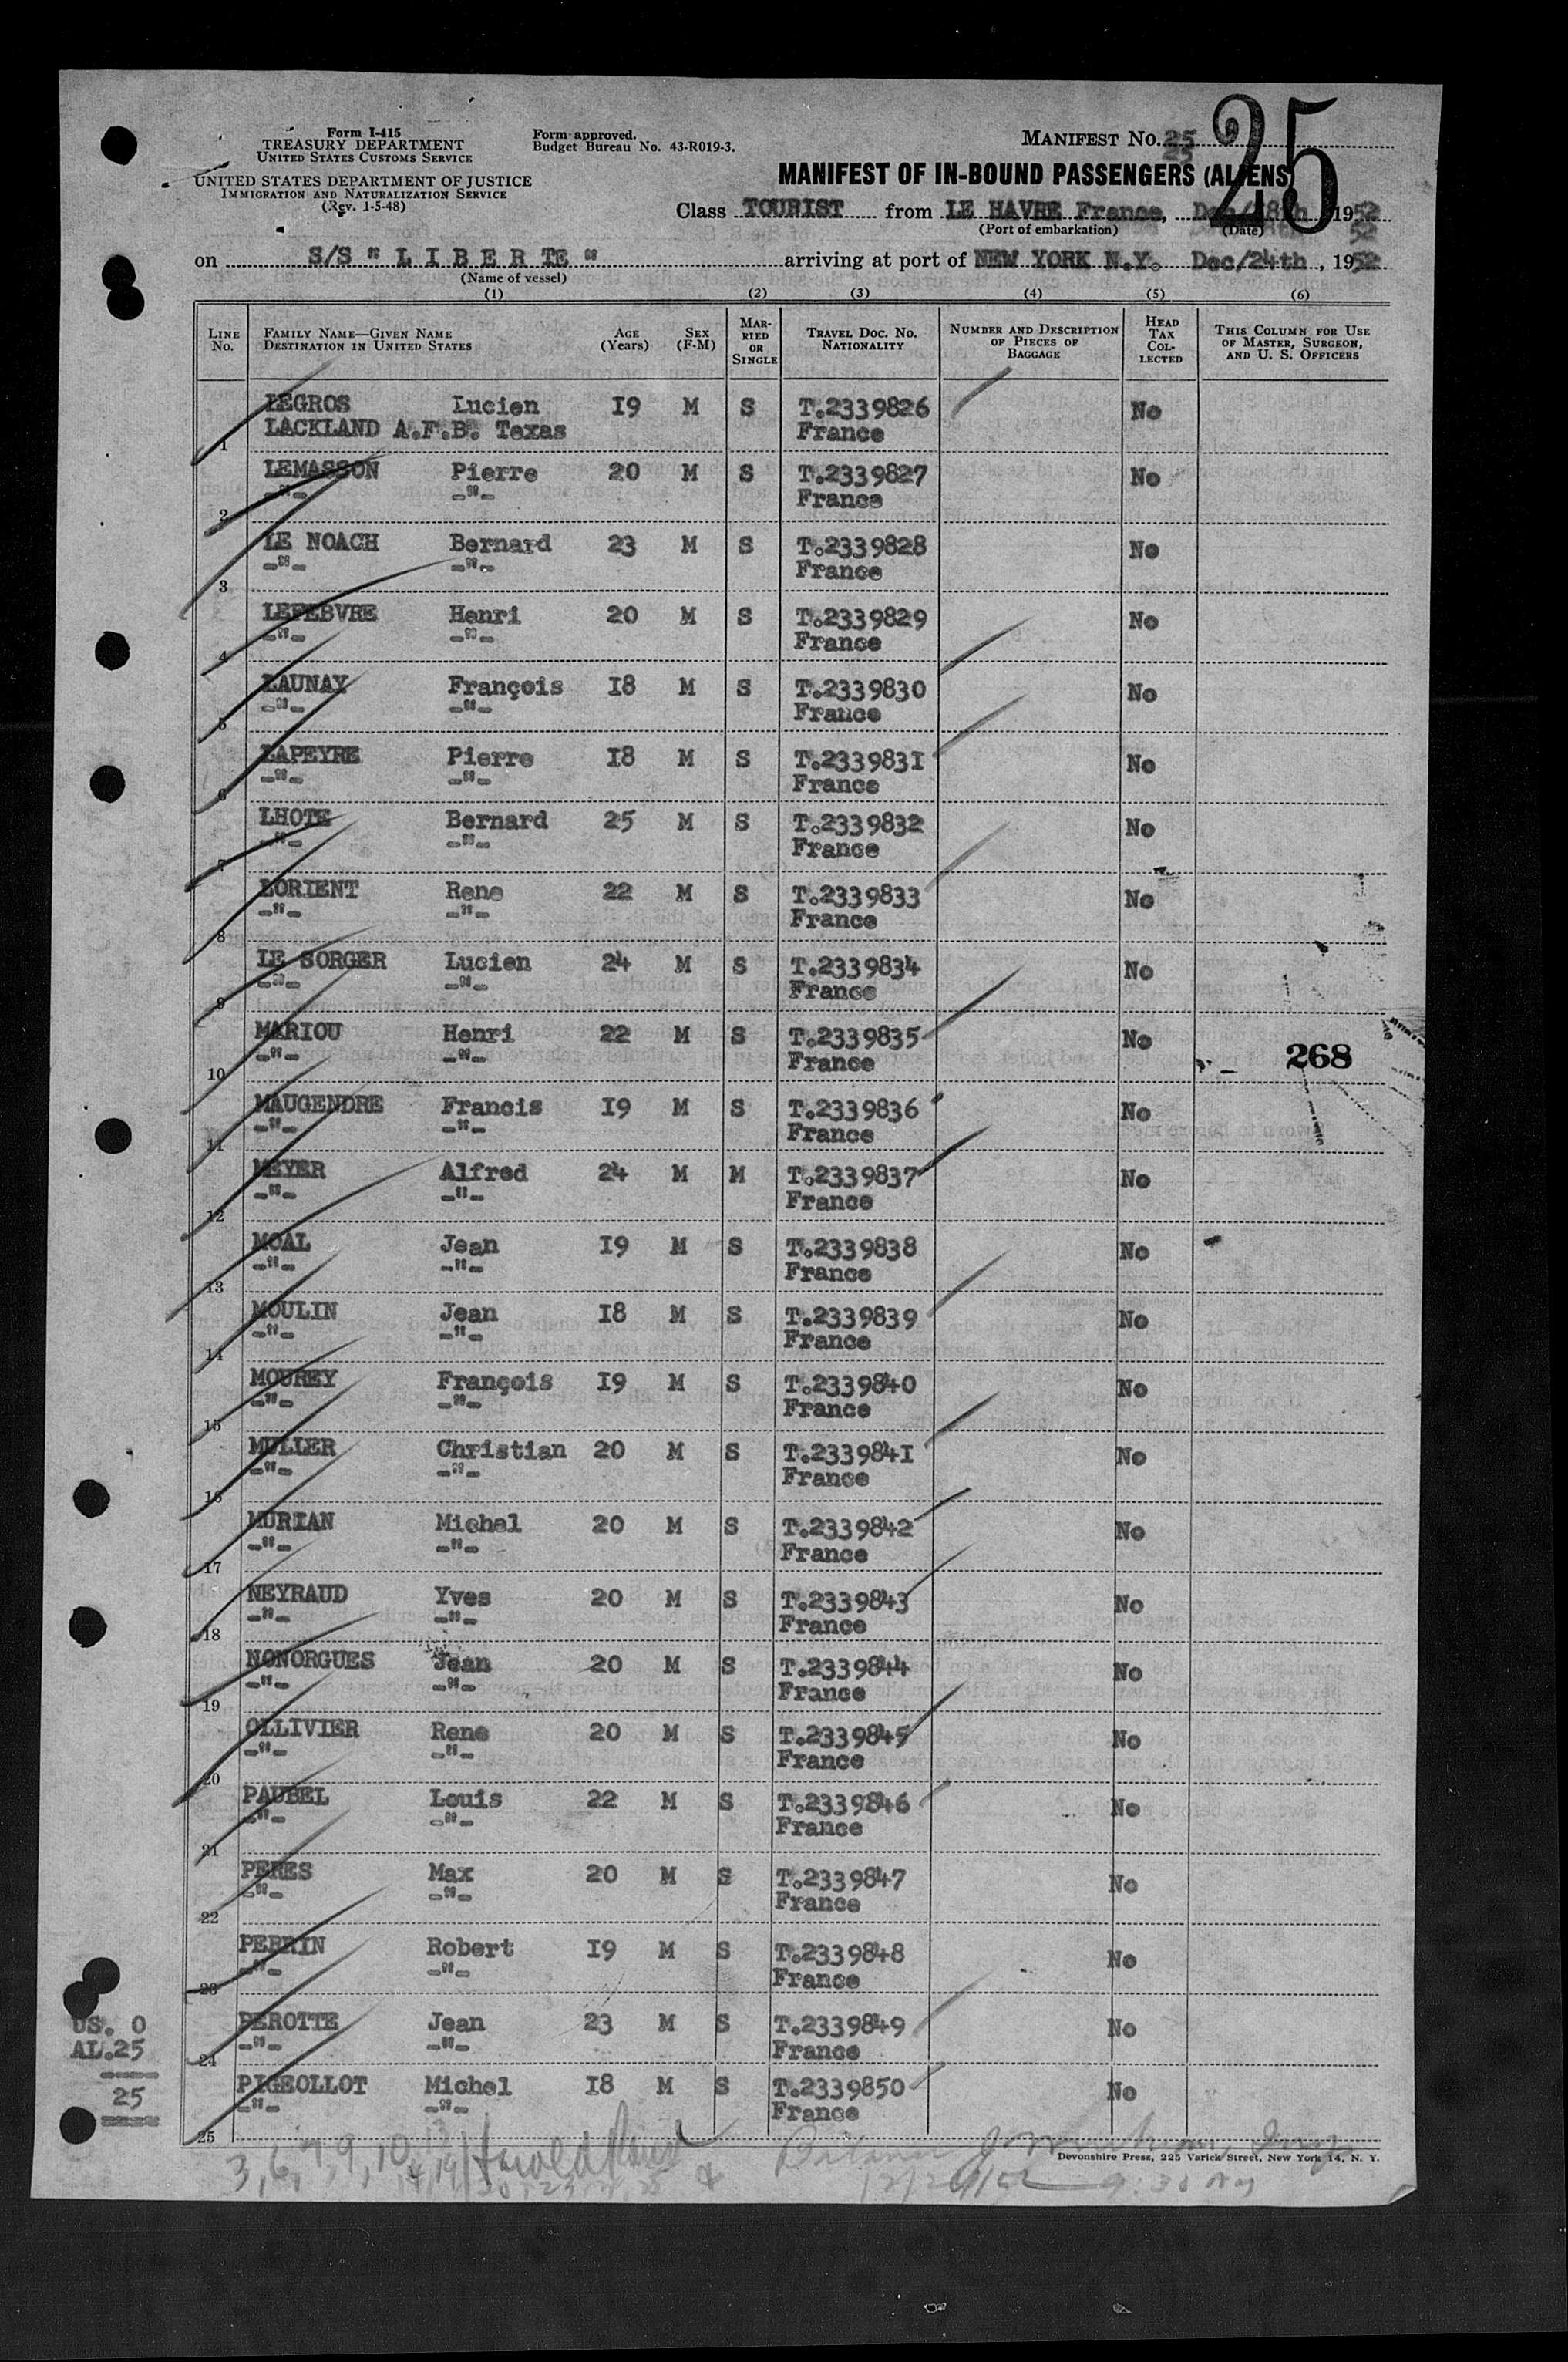 Form I-415
TREASURY DEPARTMENT
UNITED STATES CUSTOMS SERVICE
UNITED STATES DEPARTMENT OF JUSTICE
IMMIGRATION AND NATURALIZATION SERVICE
(Rev. 1-5-48)
Form approved.
Budget Bureau No. 43-R019-3.
MANIFEST No. 25
25
MANIFEST OF IN-BOUND PASSENGERS (ALIENS)
Class TOURIST from LE HAVRE France, Dec/18th 1952
(Port of embarkation) (Date)
on S/S " L I B E R TE " arriving at port of NEW YORK N.Y. Dec/24th, 1952
(Name of vessel)
(1) (2) (3) (4) (5) (6)
LINE No. FAMILY NAME—GIVEN NAME DESTINATION IN UNITED STATES AGE (Years) SEX (F-M) MARRIED OR SINGLE TRAVEL DOC. NO. NATIONALITY NUMBER AND DESCRIPTION OF PIECES OF BAGGAGE HEAD TAX COLLECTED THIS COLUMN FOR USE OF MASTER, SURGEON, AND U. S. OFFICERS
LEGROS Lucien 19 M S T.2339826 No
1 LACKLAND A.F.B. Texas France
LEMASSON Pierre 20 M S T.2339827 No
2 -"- -"- France
LE NOACH Bernard 23 M S T.2339828 No
3 -"- -"- France
LEFEBVRE Henri 20 M S T.2339829 No
4 -"- -"- France
LAUNAY François 18 M S T.2339830 No
5 -"- -"- France
LAPEYRE Pierre 18 M S T.2339831 No
6 -"- -"- France
LHOTE Bernard 25 M S T.2339832 No
7 -"- -"- France
LORIENT Rene 22 M S T.2339833 No
8 -"- -"- France
LE SORGER Lucien 24 M S T.2339834 No
9 -"- -"- France
MARIOU Henri 22 M S T.2339835 No
10 -"- -"- France 268
MAUGENDRE Francis 19 M S T.2339836 No
11 -"- -"- France
MEYER Alfred 24 M M T.2339837 No
12 -"- -"- France
MOAL Jean 19 M S T.2339838 No
13 -"- -"- France
MOULIN Jean 18 M S T.2339839 No
14 -"- -"- France
MOUREY François 19 M S T.2339840 No
15 -"- -"- France
MULLER Christian 20 M S T.2339841 No
16 -"- -"- France
MURIAN Michel 20 M S T.2339842 No
17 -"- -"- France
NEYRAUD Yves 20 M S T.2339843 No
18 -"- -"- France
NONORGUES Jean 20 M S T.2339844 No
19 -"- -"- France
OLLIVIER Rene 20 M S T.2339845 No
20 -"- -"- France
PAUBEL Louis 22 M S T.2339846 No
21 -"- -"- France
PERES Max 20 M S T.2339847 No
22 -"- -"- France
PERRIN Robert 19 M S T.2339848 No
23 -"- -"- France
PEROTTE Jean 23 M S T.2339849 No
24 -"- -"- France
PIGEOLLOT Michel 18 M S T.2339850 No
25 -"- -"- France
US. 0
AL.25
25
Devonshire Press, 225 Varick Street, New York 14, N. Y.
3, 6, 7, 9, 10, 13